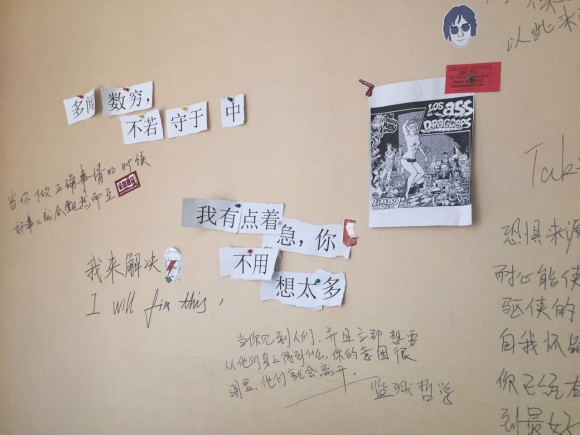 以此来
多闻 数穷,
不若 守于 中
LOS
ASS
DRAGGERS
当你做正确事情的时候
好事之will会自然而至
Tak
我有点着
急,你
不用
想太多
我来解决
I will fix this!
恐惧来源
耐心能使
驱使的
自我怀疑
你已经在
到最好
当你见到人们,并且立即想要
从他们身上得到什么,你的意图很
明显,他们就会离开。
监狱哲学